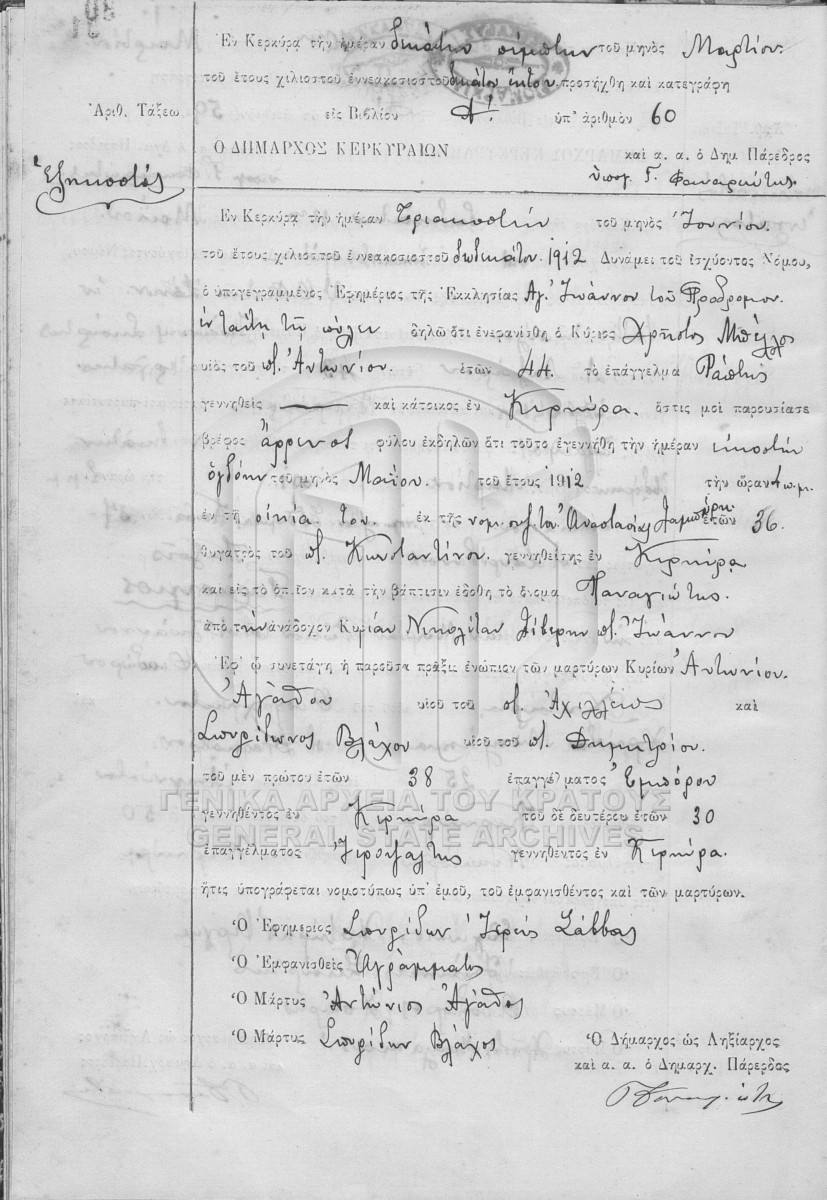 Ἐν Κερκύρᾳ τὴν ἡμέραν δεκάτην πέμπτην τοῦ μηνὸς Μαρτίου
τοῦ ἔτους χιλιοστοῦ ἐννεακοσιοστοῦ δεκάτου ἕκτου προσήχθη καὶ κατεγράφη
Ἀριθ. Τάξεω εἰς Βιβλίον Α! ὑπ' ἀριθμὸν 60
Ο ΔΗΜΑΡΧΟΣ ΚΕΡΚΥΡΑΙΩΝ καὶ α. α. ὁ Δημ Πάρεδρος
Ἑξηκοστός ὑπογ. Γ. Φαναριώτης
Ἐν Κερκύρᾳ τὴν ἡμέραν Τριακοστήν τοῦ μηνὸς Ἰουνίου.
τοῦ ἔτους χιλιοστοῦ ἐννεακοσιοστοῦ δωδεκάτου 1912 Δυνάμει τοῦ ἰσχύοντος Νόμου,
ὁ ὑπογεγραμμένος Ἐφημέριος τῆς Ἐκκλησίας Ἁγ. Ἰωάννου τοῦ Προδρόμου.
ἐν ταύτῃ τῇ πόλει δηλῶ ὅτι ἐνεφανίσθη ὁ Κύριος Χρῆστος Μπέλλος
υἱὸς τοῦ π. Ἀντωνίου. ἐτῶν 44. τὸ ἐπάγγελμα Ράπτης
γεννηθεὶς — καὶ κάτοικος ἐν Κερκύρᾳ. ὅστις μοὶ παρουσίασε
βρέφος ἄρρενος φύλου ἐκδηλῶν ὅτι τοῦτο ἐγεννήθη τὴν ἡμέραν εἰκοστήν
ὀγδόην τοῦ μηνὸς Μαΐου. τοῦ ἔτους 1912 τὴν ὥραν π.μ.
ἐν τῇ οἰκίᾳ του. ἐκ τῆς νομ. συζ του Ἀναστασίας ἐτῶν 36.
θυγατρὸς τοῦ π. Κωνσταντίνου. γεννηθείσης ἐν Κερκύρᾳ
καὶ εἰς τὸ ὁποῖον κατὰ τὴν βάπτισιν ἐδόθη τὸ ὄνομα Παναγιώτης.
ἀπὸ τὴν ἀνάδοχον Κυρίαν Νικολέταν π. Ἰωάννου
Ἐφ' ᾧ συνετάγη ἡ παροῦσα πρᾶξις ἐνώπιον τῶν μαρτύρων Κυρίων Ἀντωνίου.
Ἀγάθου υἱοῦ τοῦ π. Ἀχιλλέως καὶ
Σπυρίδωνος Βλάχου υἱοῦ τοῦ π. Δημητρίου.
τοῦ μὲν πρώτου ἐτῶν 38 ἐπαγγέλματος Ἐμπόρου
ΓΕΝΙΚΑ ΑΡΧΕΙΑ ΤΟΥ ΚΡΑΤΟΥΣ
γεννηθέντος ἐν Κερκύρᾳ τοῦ δὲ δευτέρου ἐτῶν 30
GENERAL STATE ARCHIVES
ἐπαγγέλματος Ἱεροψάλτης γεννηθέντος ἐν Κερκύρᾳ.
ἥτις ὑπογράφεται νομοτύπως ὑπ' ἐμοῦ, τοῦ ἐμφανισθέντος καὶ τῶν μαρτύρων.
Ὁ Ἐφημέριος Σπυρίδων Ἱερεύς Σάββας
Ὁ Ἐμφανισθεὶς Ἀγράμματος
Ὁ Μάρτυς Ἀντώνιος Ἀγάθος
Ὁ Μάρτυς Σπυρίδων Βλάχος Ὁ Δήμαρχος ὡς Ληξίαρχος
καὶ α. α. ὁ Δημαρχ. Πάρερδος